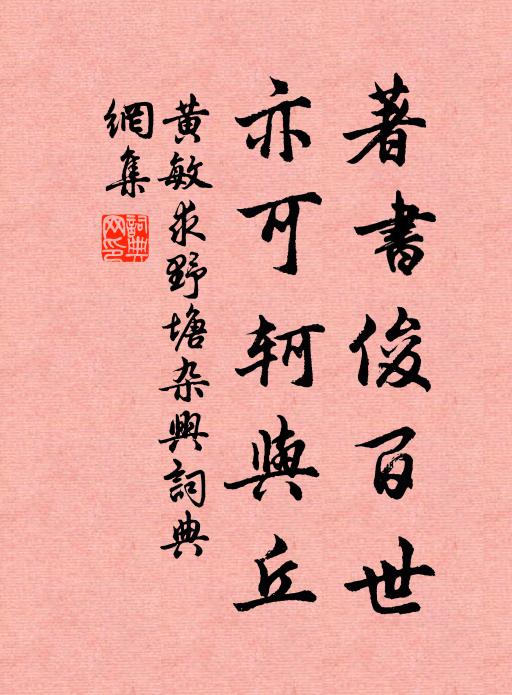 著書俊百世
亦可軻與丘
黄敏求野塘杂興詞典
網集
詞典網印